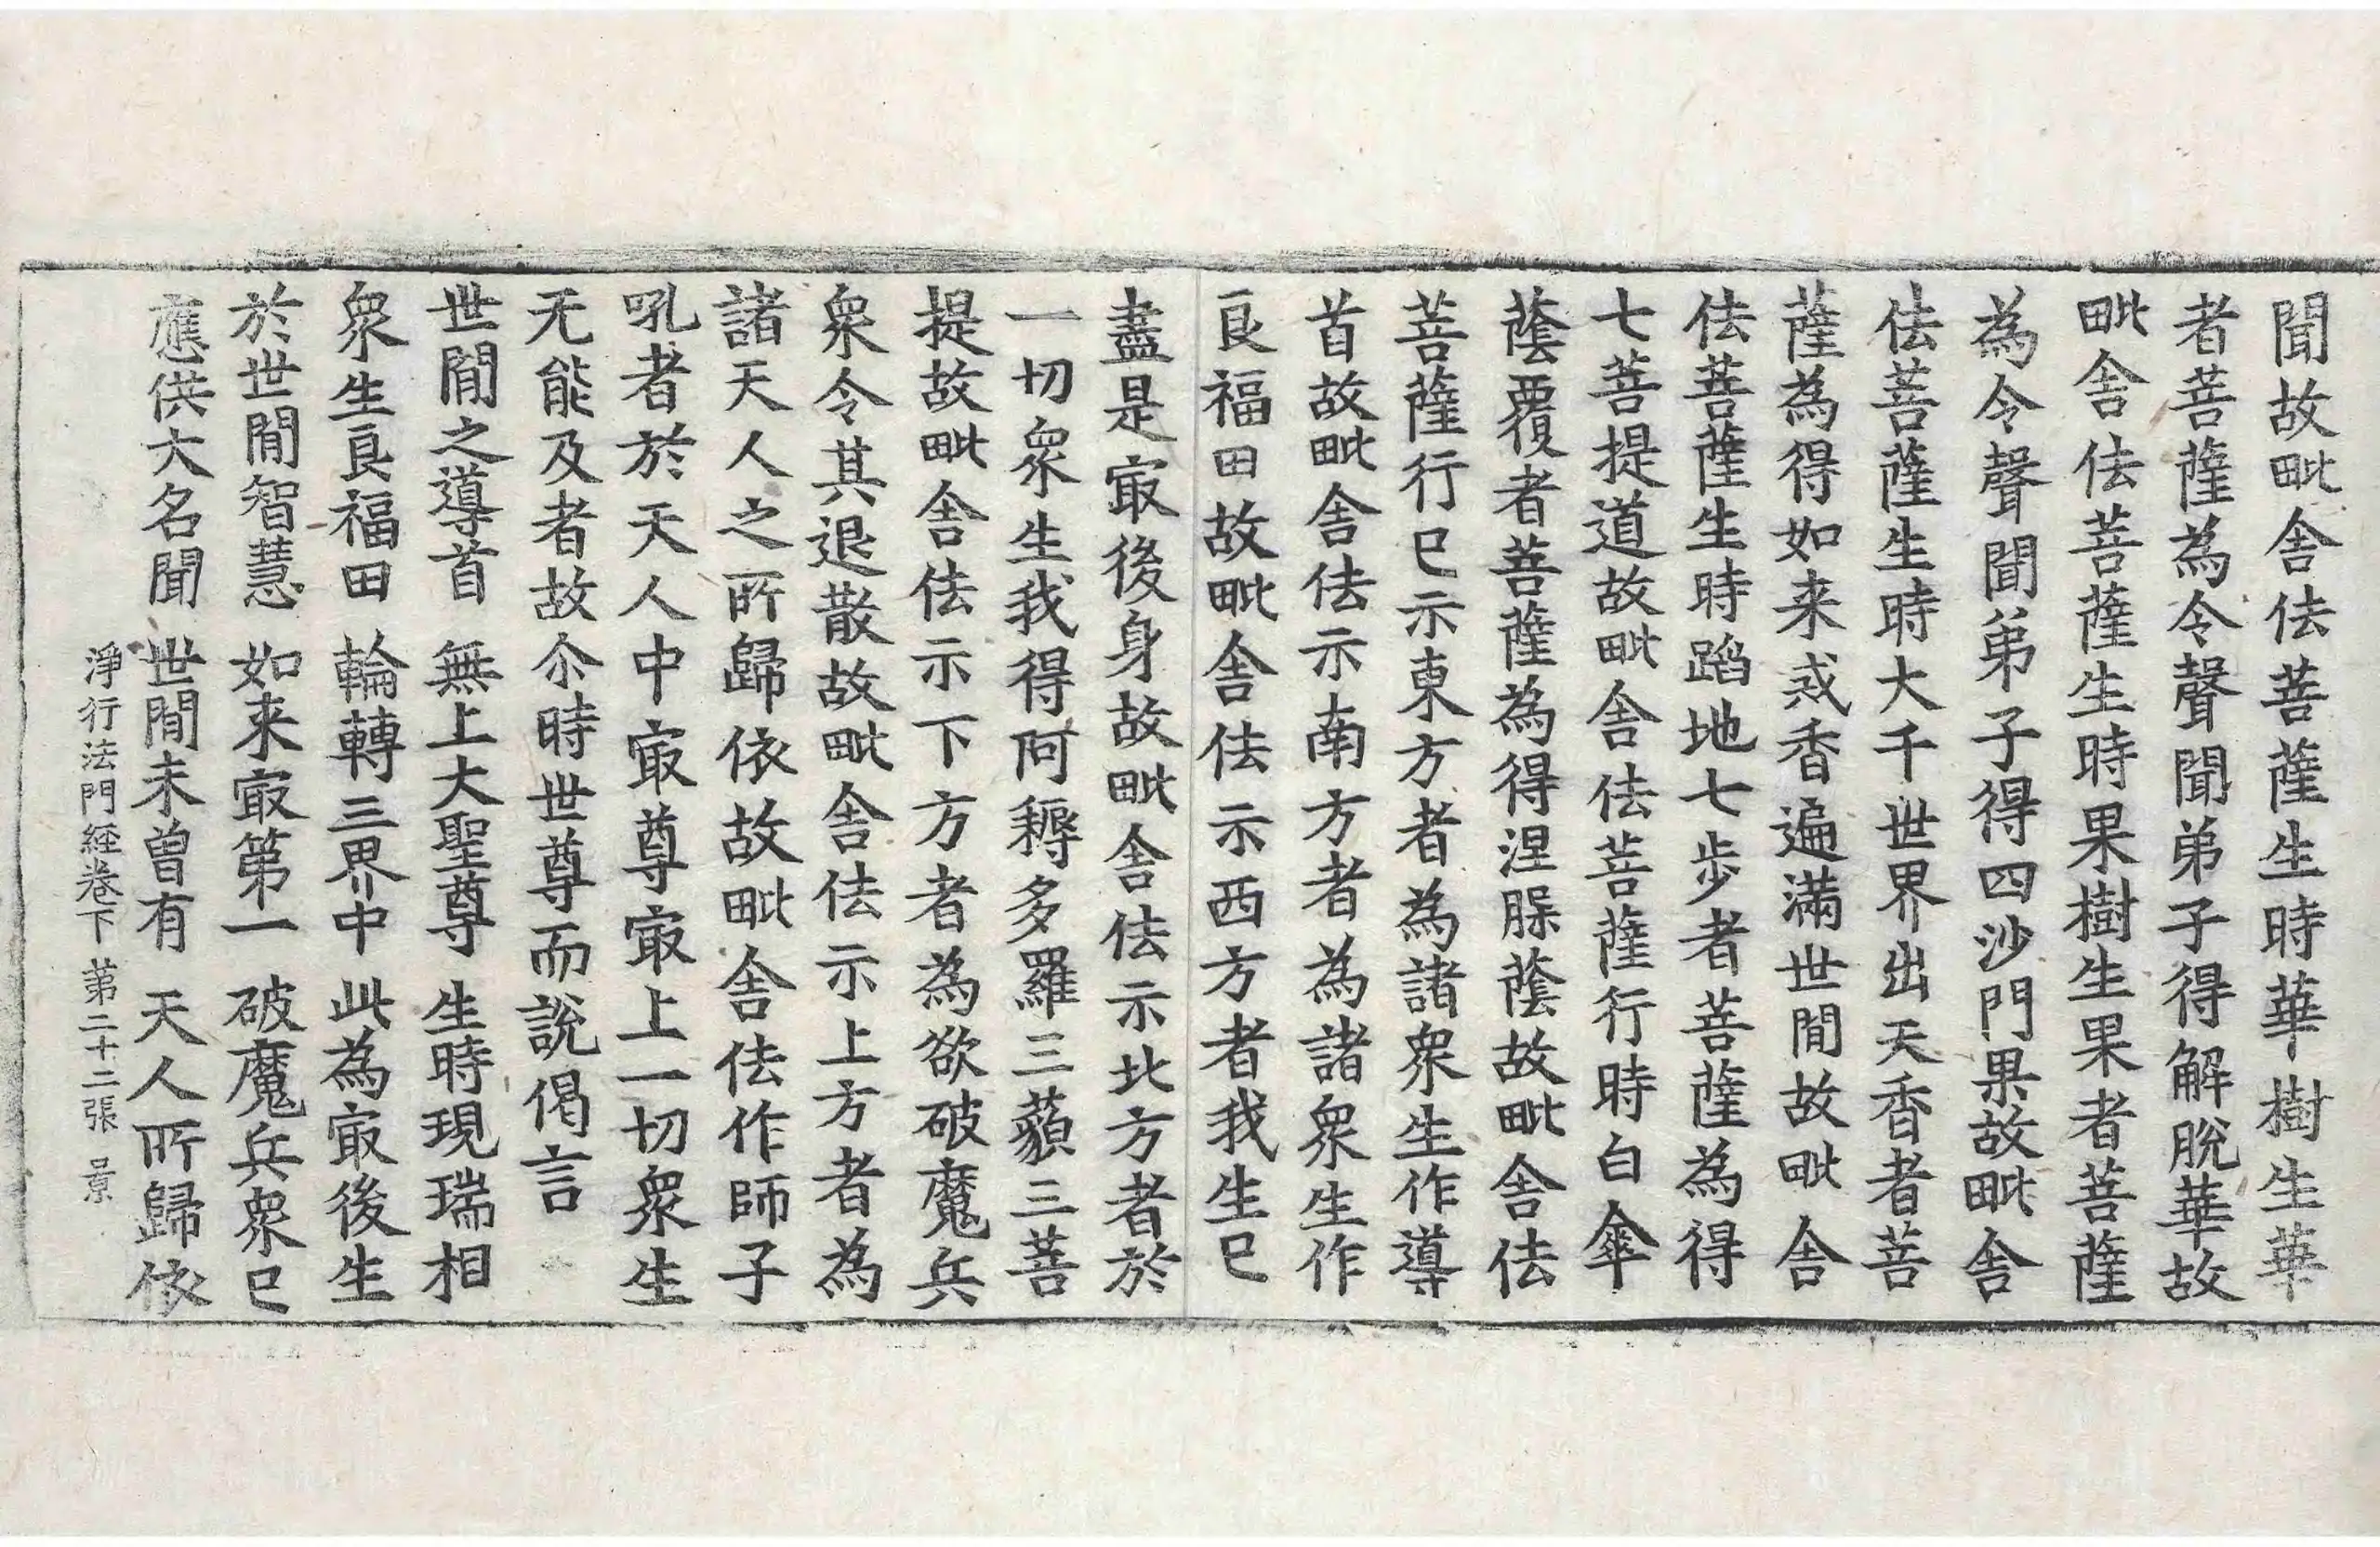 聞故毗舍佉菩薩生時華樹生華
者菩薩為令聲聞弟子得解脫華故
毗舍佉菩薩生時果樹生果者菩薩
為令聲聞弟子得四沙門果故毗舍
佉菩薩生時大千世界出天香者菩
薩為得如来戒香遍滿世間故毗舍
佉菩薩生時蹈地七步者菩薩為得
七菩提道故毗舍佉菩薩行時白傘
蔭覆者菩薩為得涅槃蔭故毗舍佉
菩薩行已示東方者為諸衆生作導
首故毗舍佉示南方者為諸衆生作
良福田故毗舍佉示西方者我生已
盡是㝡後身故毗舍佉示北方者於
一切衆生我得阿耨多羅三藐三菩
提故毗舍佉示下方者為欲破魔兵
衆令其退散故毗舍佉示上方者為
諸天人之所歸依故毗舍佉作師子
吼者於天人中㝡尊㝡上一切衆生
无能及者故尒時世尊而說偈言
世間之導首　無上大聖尊　生時現瑞相
衆生良福田　輪轉三界中　此為㝡後生
於世間智慧　如来㝡第一　破魔兵衆已
應供大名聞　世間未曾有　天人所歸依
淨行法門経卷下　第二十二張　景